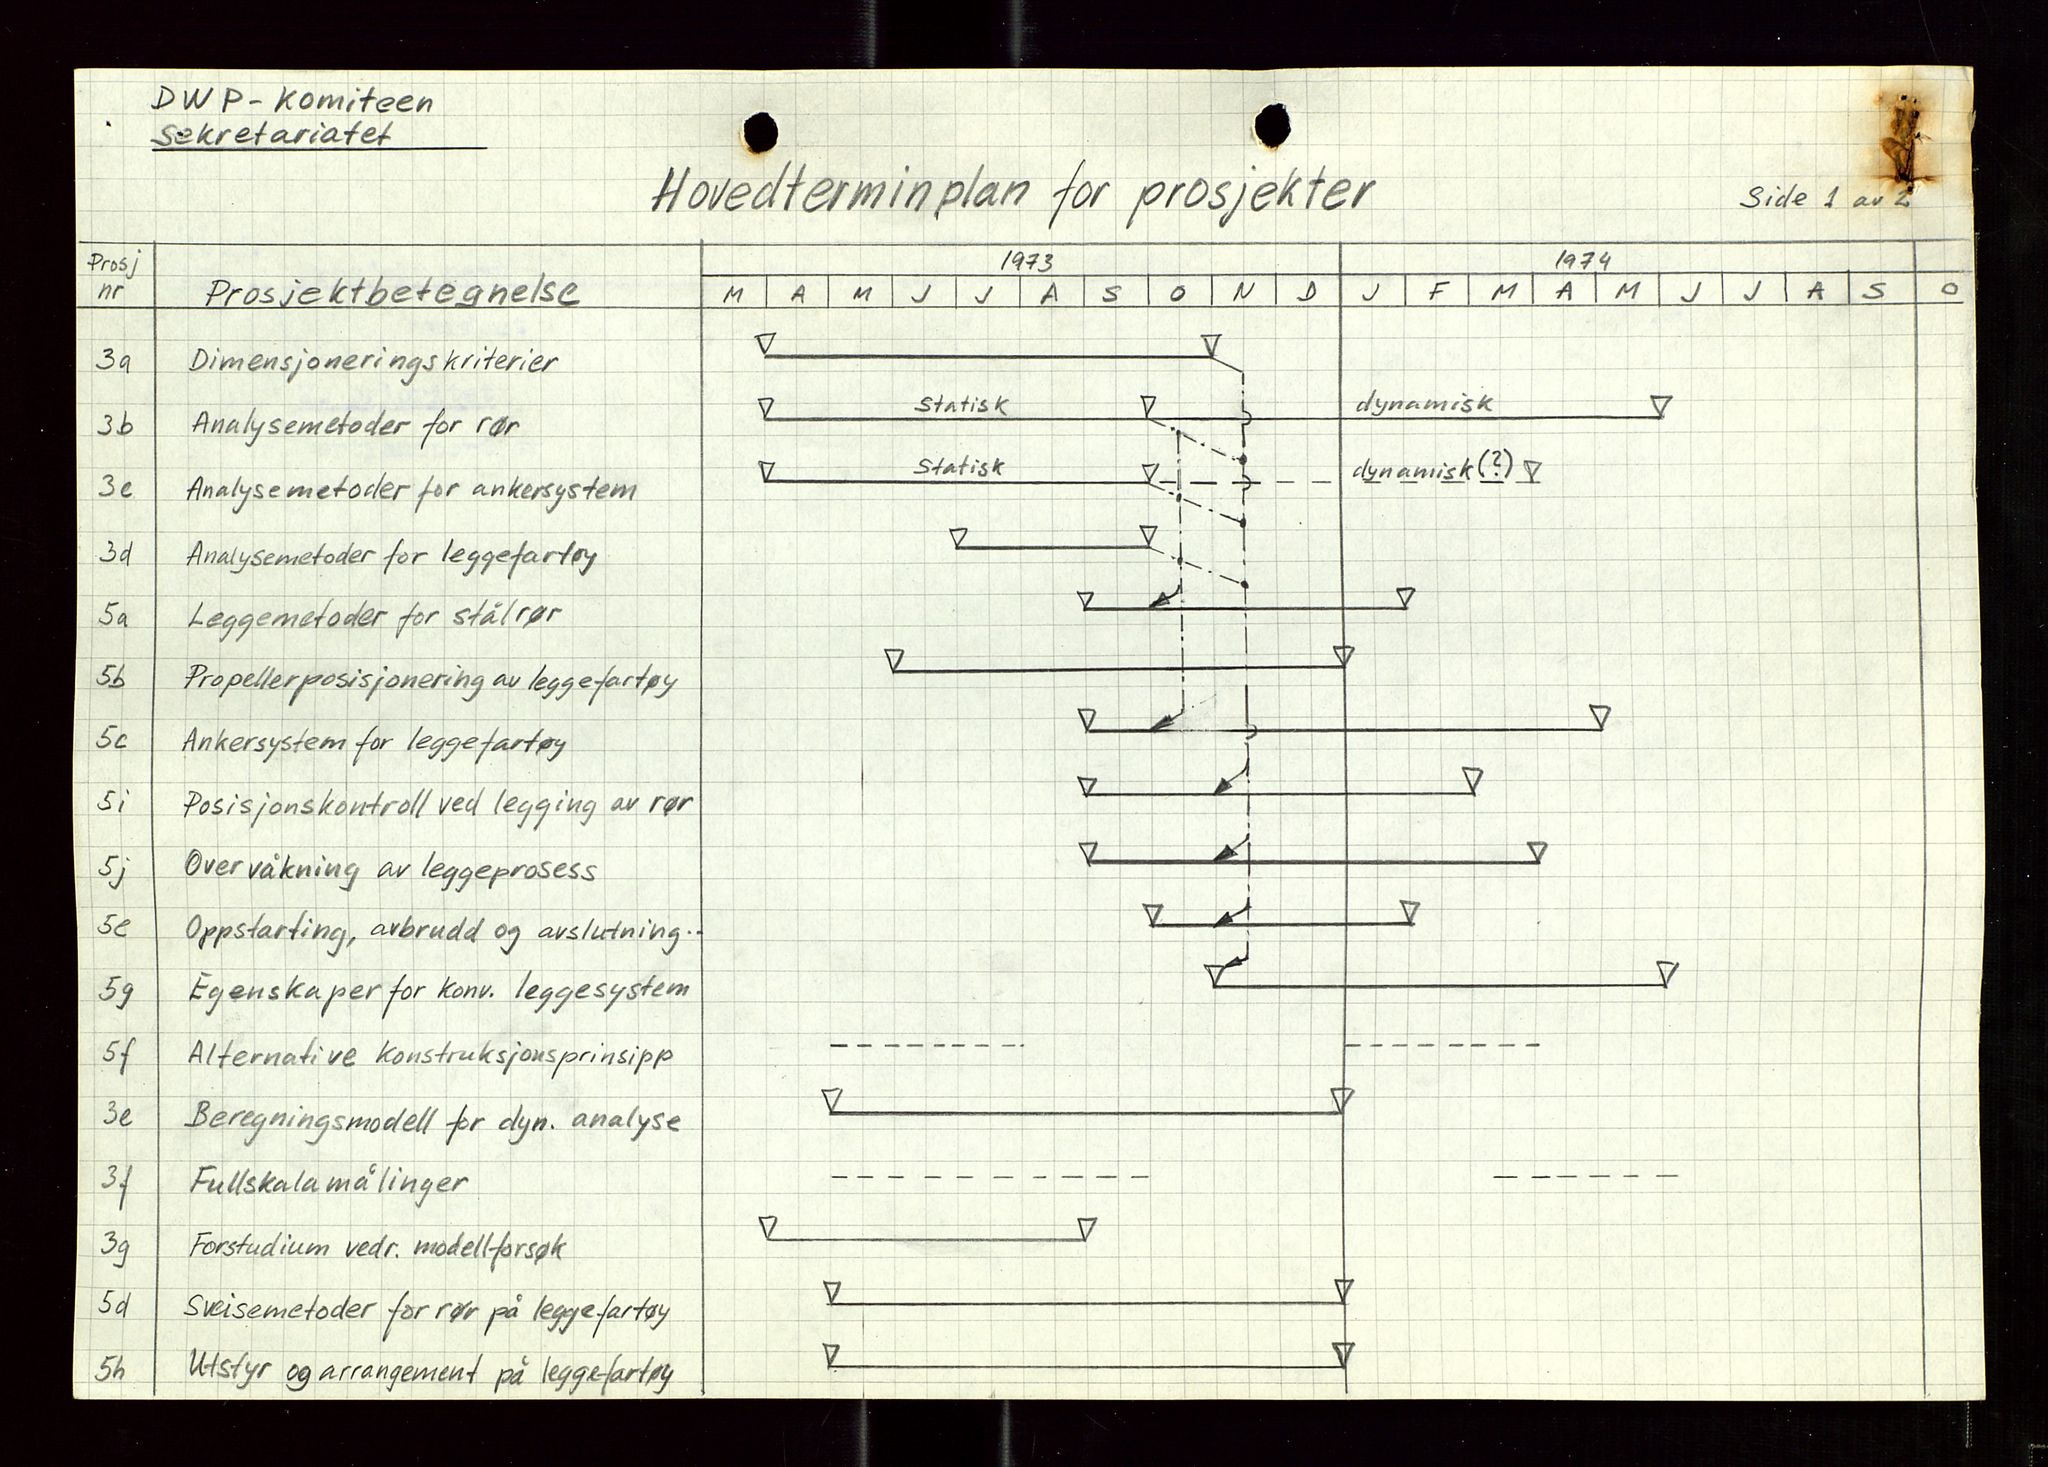 DWP-Komiteen
Sekretariatet
Hovedterminplan for prosjekter
Side 1 av 2
Prosj nr Prosjektbetegnelse 1973 1974
M A M J J A S O N D J F M A M J J A S O
3a Dimensjoneringskriterier
3b Analysemetoder for rør Statisk dynamisk
3c Analysemetoder for ankersystem Statisk dynamisk(?)
3d Analysemetoder for leggefartøy
5a Leggemetoder for stålrør
5b Propellerposisjonering av leggefartøy
5c Ankersystem for leggefartøy
5i Posisjonskontroll ved legging av rør
5j Overvåkning av leggeprosess
5e Oppstarting, avbrudd og avslutning..
5g Egenskaper for konv. leggesystem
5f Alternative konstruksjonsprinsipp
3e Beregningsmodell for dyn. analyse
3f Fullskalamålinger
3g Forstudium vedr. modellforsøk
5d Sveisemetoder for rør på leggefartøy
5h Utstyr og arrangement på leggefartøy